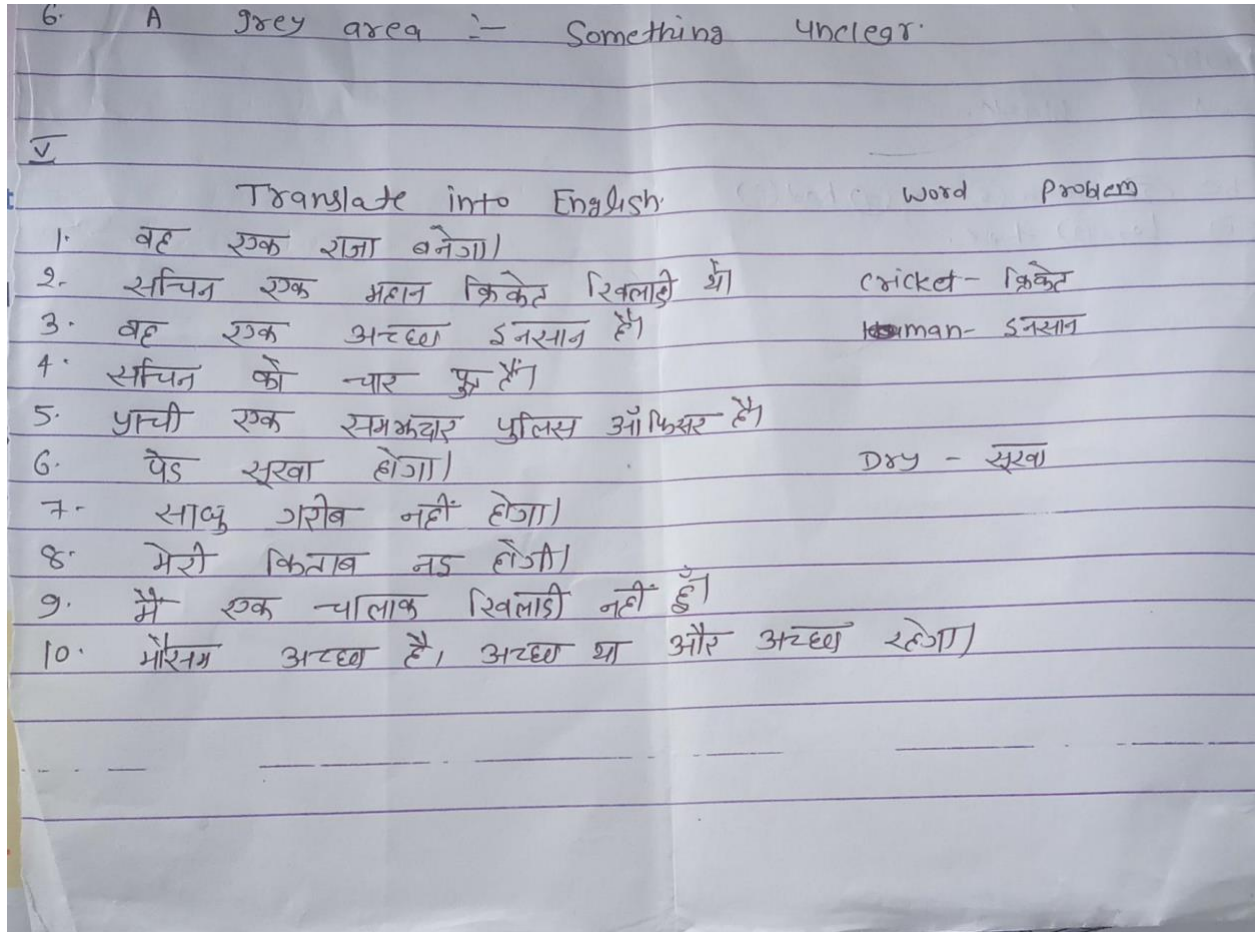 6. A grey area :- Something unclear.
V
Translate into English. Word Problem
1. वह एक राजा बनेगा।
2. सचिन एक महान क्रिकेट खिलाडी थे। Cricket - क्रिकेट
3. वह एक अच्छा इनसान है। Human - इनसान
4. सचिन को चार पुत्र हैं।
5. प्राची एक समझदार पुलिस ऑफिसर है।
6. पेड सूखा होगा। Dry - सूखा
7. साधु गरीब नहीं होगा।
8. मेरी किताब नइ होगी।
9. मैं एक चालाक खिलाडी नहीं हुँ।
10. मौसम अच्छा है, अच्छा था और अच्छा रहेगा।